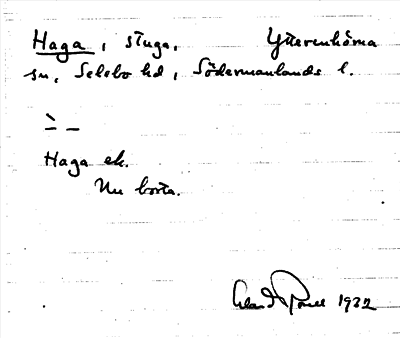 Haga, stuga. Ytterenhörna
sn, Selebo hd, Södermanlands l.
Haga ek.
Nu borta.
1932